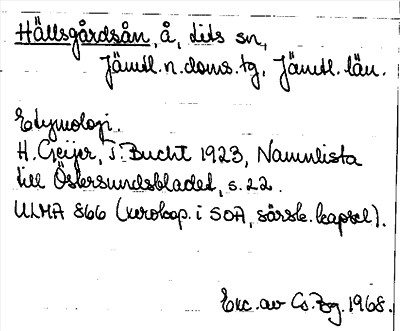 Hällsgårdsån, å, Lits sn,
Jämtl. n. doms. tg, Jämtl. län.
Etymologi.
H. Geijer, T. Bucht 1923, Namnlista
till Östersundsbladet, s. 22.
ULMA 866 (xerokop. i SOA, särsk. kapsel).
Exc. av Cs. Bg. 1968.